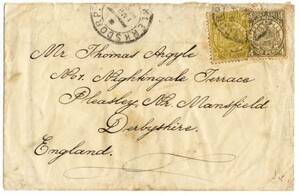 KLERKSDORP
Mr Thomas Argyle
No 1. Nightingale Terrace
Pleasley, Nr. Mansfield
Derbyshire.
England.